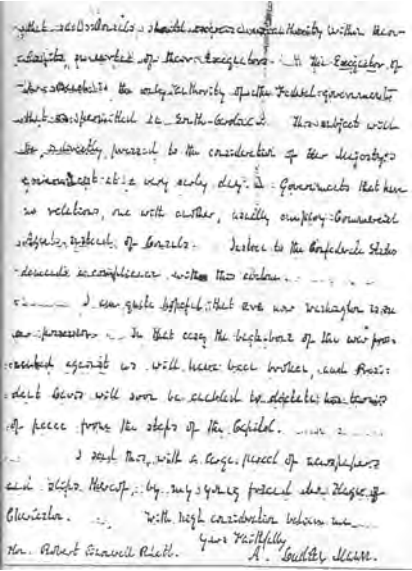 that such Consuls should exercise authority within their
of their Exequaturs. the Exequator of
is the only authority of the Federal government
that is permitted in South-Carolina. This subject will
be, directly, pressed to the consideration of Her Majesty's
government at a very early day. Governments that have
no relations, one with another, usually employ Commercial
Agents, instead of Consuls. Justice to the Confederate States
demands a compliance with this custom.
I am quite hopeful, that ere now Washington is in
our possession. In that case the back-bone of the war pros-
ecuted against us will have been broken, and Presi-
dent Davis will soon be enabled to dictate his terms
of peace from the steps of the Capitol.
I send this, with a large parcel of newspapers
and slips thereof, by my young friend of
Charleston. With high consideration believe me
Yours Faithfully
Hon. Robert Barnwell Rhett. A. Dudley Mann.